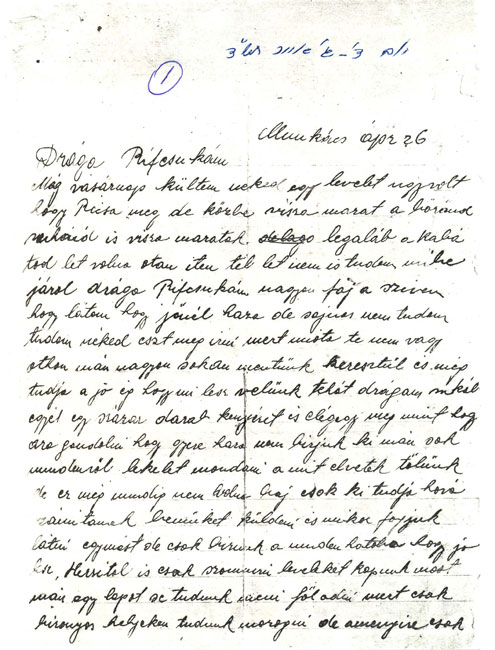 1
Munkács ápr 26
Drága Rifcsukám
Még vasárnap kültem neked egy levelet ugy volt
hogy Rúsa meg de közbe visra marat a böröond
ruháid is visra maratak legaláb a kabá
tod let volna otan iten tél let nem is tudom mibe
járol drága Rifcsukám nagyon fáj a szivem
hogy látom hogy jönél haza de sajnos nem tudom
tudom neked csat meg irni mert miota te nem vagy
othon mán nagyon sokan mentünk keresztül és még
tudja a jó ég hogy mi lesz velünk tehát drágám
egyél egy száraz darab kenyeret is elégegy meg mint hogy
ara gondolni hogy gyere haza nem birjuk ki mán sok
mindenröl lekelet mondani a mit elvetek tölünk
de ez még mindig nem volna baj csak ki tudja hová
bemünket küldeni és mikor fogjuk
látni egymást de csak bizunk a mindenhatoba hogy jo
lesz, is csak szomorú leveleket kapunk most
mán egy lapot se tudunk föl adni mert csak
bizonyos helyeken tudunk mozogni de amenyire csak